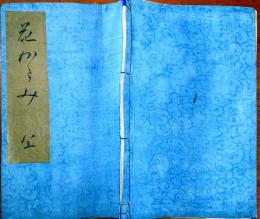 花かゞみ 全